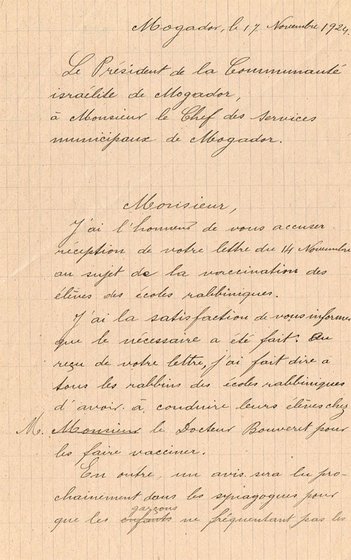 Mogador, le 17 Novembre 1924.
Le Président de la Communauté
israélite de Mogador,
à Monsieur le Chef des services
municipaux de Mogador.
Monsieur,
J'ai l'honneur de vous accuser
réception de votre lettre du 14 Novembre
au sujet de la vaccination des
élèves des écoles rabbiniques.
J'ai la satisfaction de vous informer
que le nécessaire a été fait. Au
reçu de votre lettre, j'ai fait dire à
tous les rabbins des écoles rabbiniques
d'avoir à conduire leurs élèves chez
M. Monsieur le Docteur Bouveret pour
les faire vacciner.
En outre, un avis sera lu pro-
chainement dans les synagogues pour
garçons
que les enfants ne fréquentant pas les